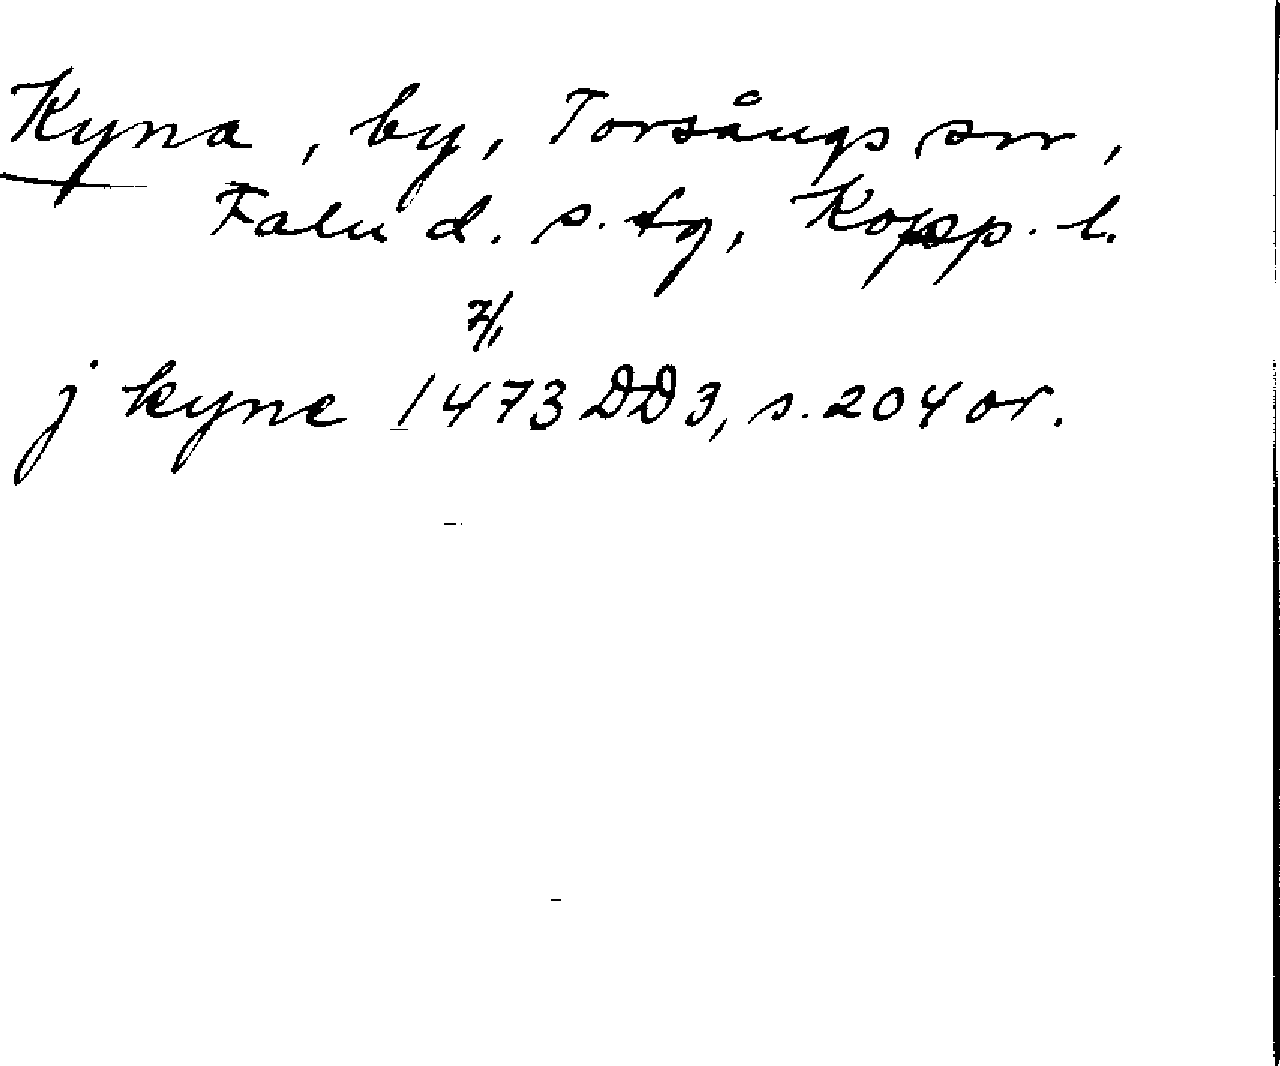 Kyna, by, Torsångs sn,
Falu d. s. tg, Kopp. l.
7/1
j kyne 1473 DD 3, s. 204 or.